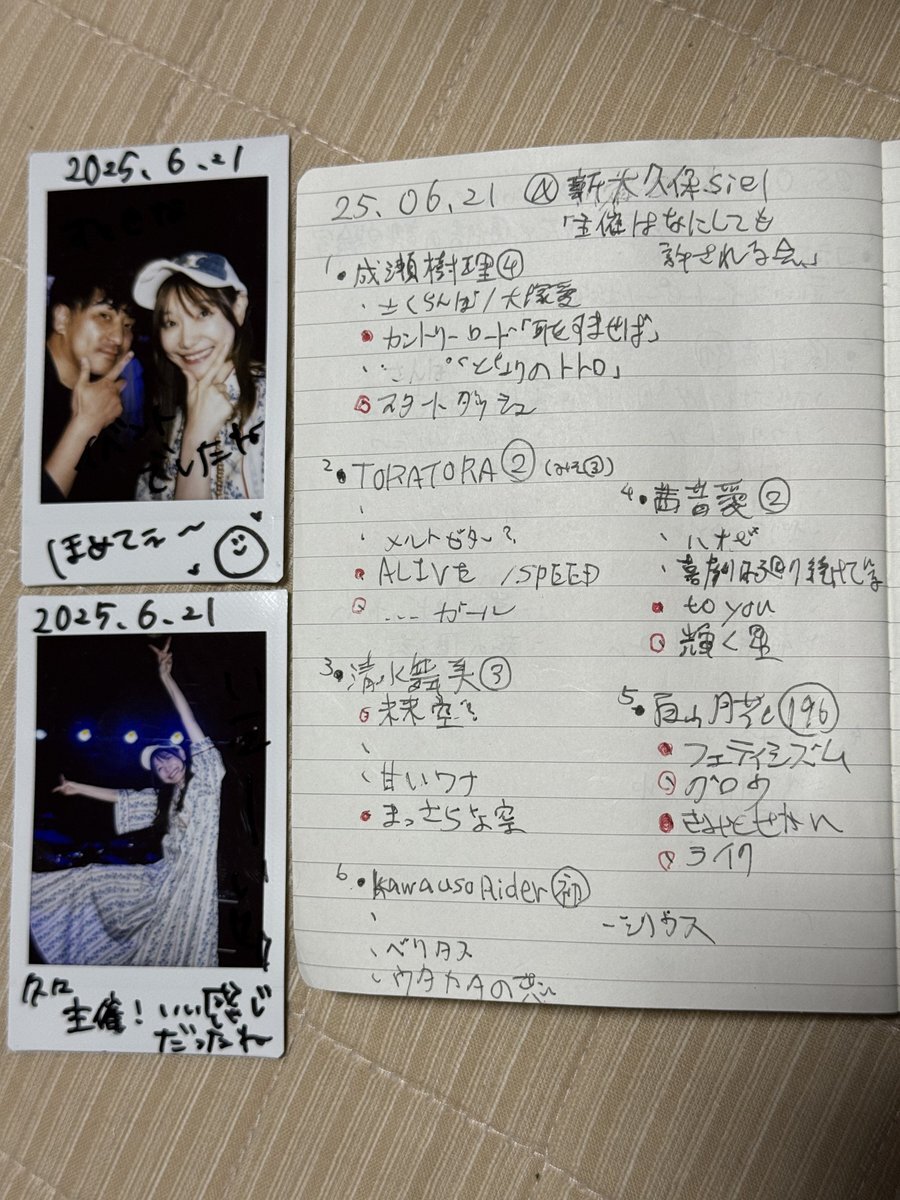 2025.6.21
でしたね
ほめてぇ〜
2025.6.21
主催!いい感じ
だったね
25.06.21 @新大久保siel
「主催はなにしても
許される会」
1 成瀬樹理④
さくらんぼ/大塚愛
カントリーロード「耳をすませば」
「となりのトトロ」
スタートダッシュ
2 TORATORA② (みそ③)
メルトビター?
ALIVE /SPEED
....ガール
3 清水舞美③
未来空?
甘いワナ
まっさらな空
4 茜音愛②
ハナビ
喜劇は廻り続けて
to you
輝く星
5 百山月花(196)
フェティシズム
グロウ
きみとせかい
ライク
6 kawausoRider(初)
ベリタス
ウタカタの恋